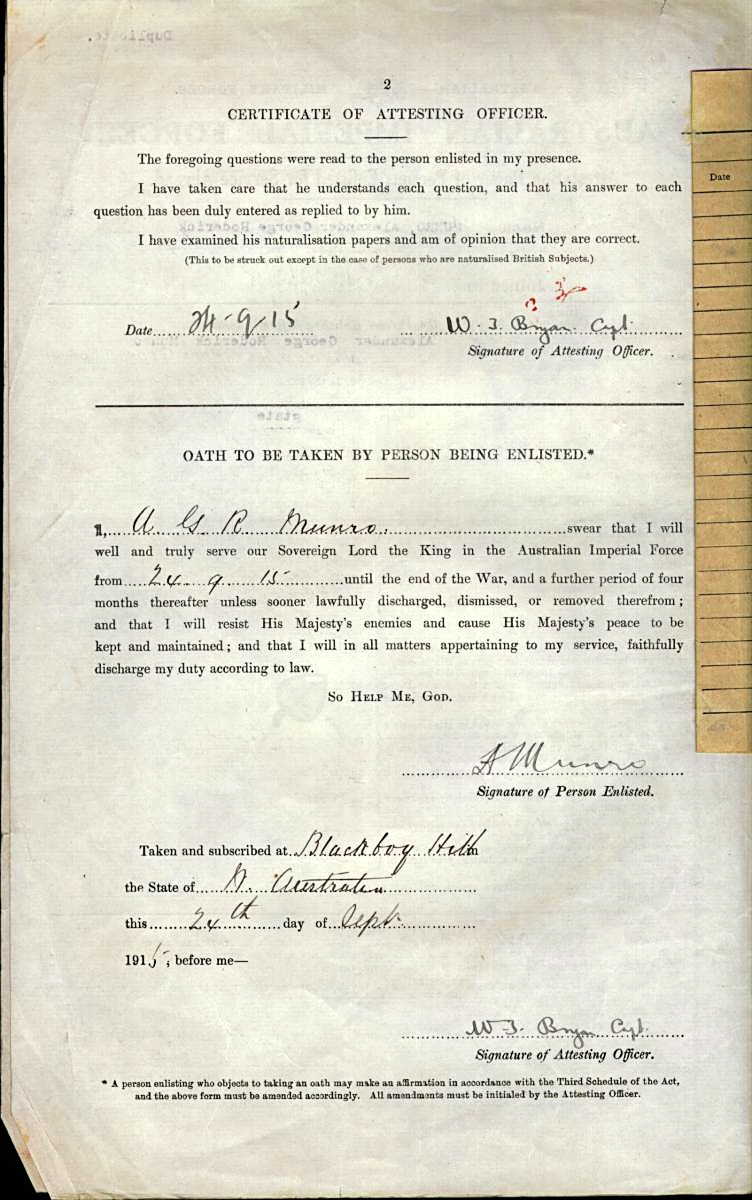 2
CERTIFICATE OF ATTESTING OFFICER.
The foregoing questions were read to the person enlisted in my presence.
I have taken care that he understands each question, and that his answer to each
question has been duly entered as replied to by him.
I have examined his naturalisation papers and am of opinion that they are correct.
(This to be struck out except in the case of persons who are naturalised British Subjects.)
Date 24-9-15 W. F. Bryan Capt.
Signature of Attesting Officer.
OATH TO BE TAKEN BY PERSON BEING ENLISTED.*
I, A G R Munro. swear that I will
well and truly serve our Sovereign Lord the King in the Australian Imperial Force
from 24 9 15 until the end of the War, and a further period of four
months thereafter unless sooner lawfully discharged, dismissed, or removed therefrom;
and that I will resist His Majesty's enemies and cause His Majesty's peace to be
kept and maintained; and that I will in all matters appertaining to my service, faithfully
discharge my duty according to law.
So Help Me, God.
A Munro
Signature of Person Enlisted.
Taken and subscribed at Blackboy Hill in
the State of W. Australia
this 24th day of Sept.
1915, before me—
W F. Bryan Capt.
Signature of Attesting Officer.
* A person enlisting who objects to taking an oath may make an affirmation in accordance with the Third Schedule of the Act,
and the above form must be amended accordingly. All amendments must be initialed by the Attesting Officer.
Date